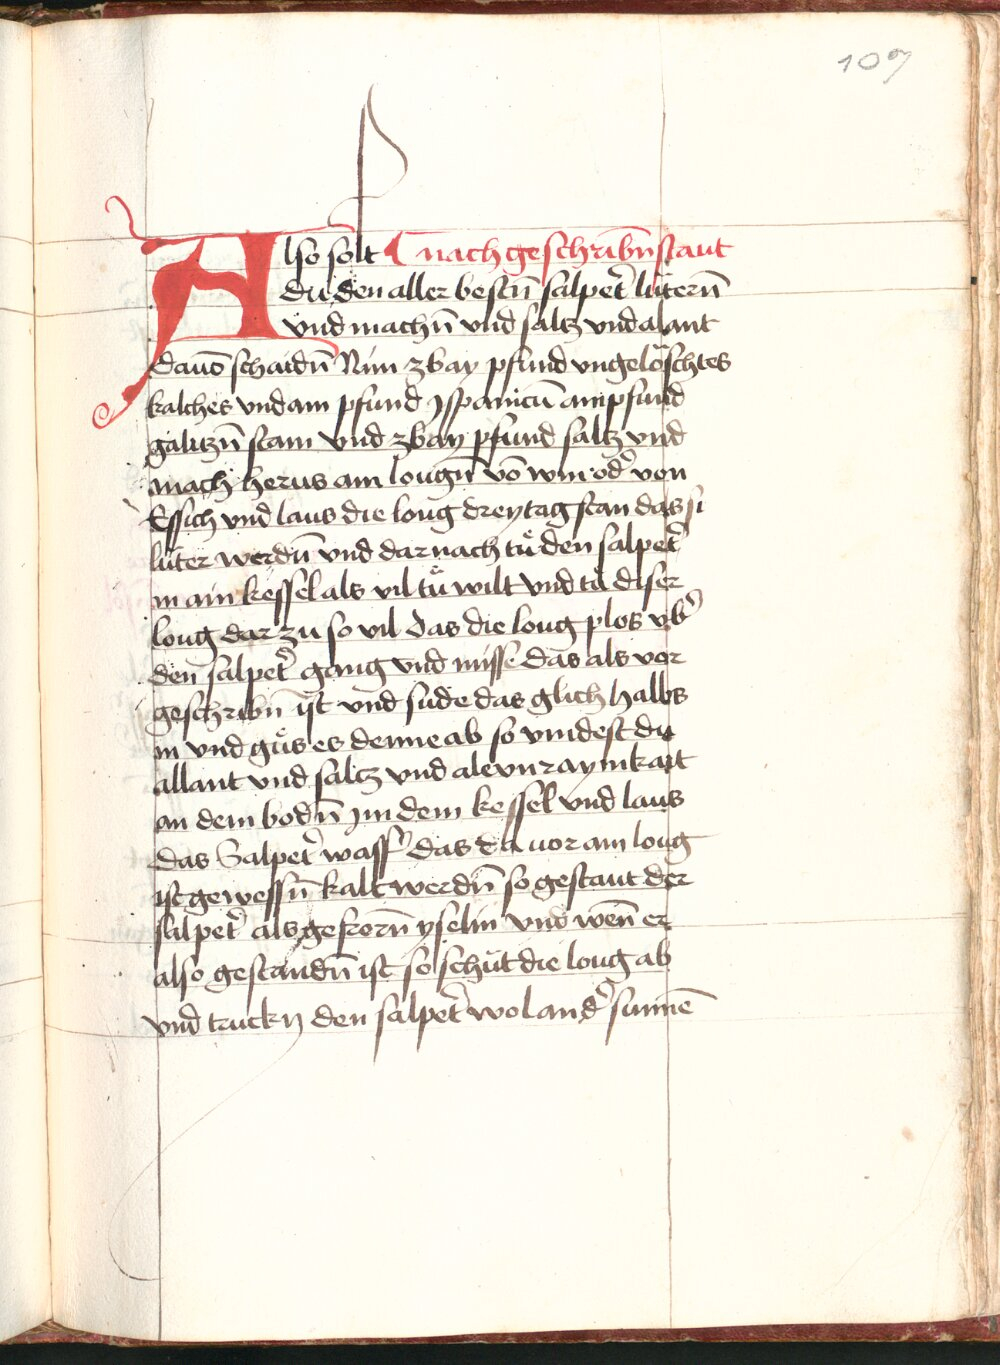 107
Also solt nach geschribn̄ staut
du den aller bestn̄ salpet̄ lǔtern̄
vnd machn̄ vnd saltz vnd alant
dauō schaidn̄ Nim zway pfund vngelöschtes
kalches vnd am pfund yspanicū am pfund
galitzn̄ stam vnd zway pfund saltz vnd
mach herus am lougn̄ vō win od̄ von
Essich vnd laus die loug drey tag stan das si
luter werdn̄ vnd dar nach tů den salpet̄
in ain kessel als vil tů wilt vnd tů diser
loug dar zu so vil das die loug plos vb̄
den salpet̄ gang vnd misse das als vor
geschribn̄ ist vnd sude das glich halbs
in vnd gůs es denne ab so vindest du
allant vnd saltz vnd alevn ray inkait
an dem bodn̄ Jm dem kessel vnd laus
das Salpet̄ wass̄ das da vor am loug
ist gewessn̄ kalt werdn̄ so gestaut der
salpet̄ als gefrorn̄ yselin vnd wen̄ er
also gestandn̄ ist so schüt die loug ab
vnd truckn den salpet̄ wol an d̄ sunnē